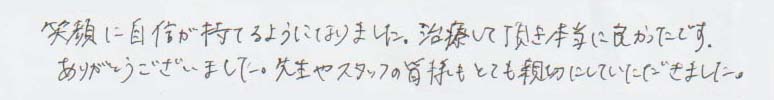 笑顔に自信が持てるようになりました。治療して頂き本当に良かったです.
ありがとうございました。先生やスタッフの皆様もとても親切にしていただきました。